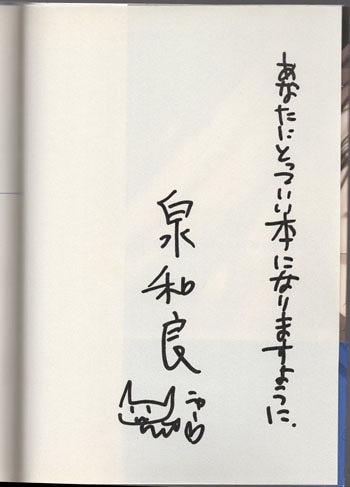 あなたにとっていい本になりますように.
泉和良
にゃー♡